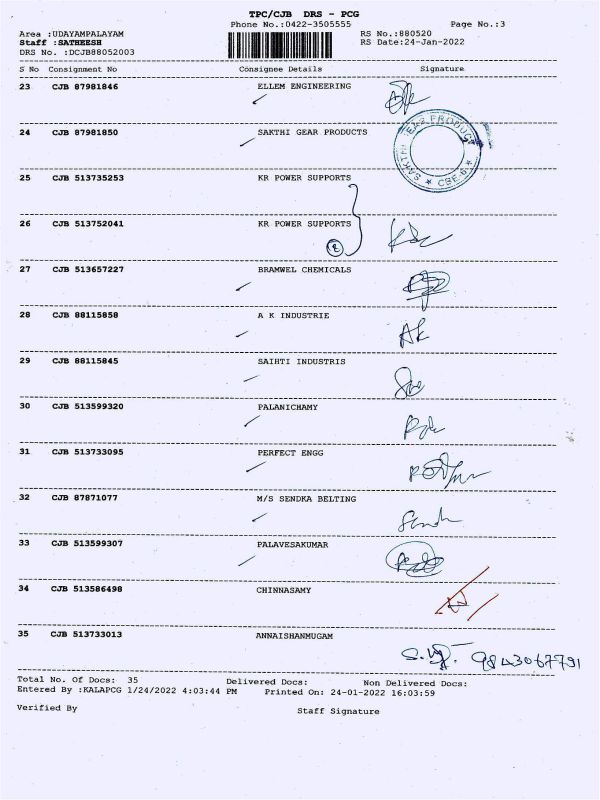 TPC/CJB DRS - PCG
Phone No.:0422-3505555 Page No.:3
Area :UDAYAMPALAYAM RS No.:880520
Staff :SATHEESH RS Date:24-Jan-2022
DRS No. :DCJB88052003
S No Consignment No Consignee Details Signature
23 CJB 87981846 ELLEM ENGINEERING
24 CJB 87981850 SAKTHI GEAR PRODUCTS
SAKTHI GEAR PRODUCTS ★ CBE-6 ★
25 CJB 513735253 KR POWER SUPPORTS
26 CJB 513752041 KR POWER SUPPORTS
27 CJB 513657227 BRAMWEL CHEMICALS
28 CJB 88115858 A K INDUSTRIE
AK
29 CJB 88115845 SAIHTI INDUSTRIS
30 CJB 513599320 PALANICHAMY
31 CJB 513733095 PERFECT ENGG
32 CJB 87871077 M/S SENDKA BELTING
33 CJB 513599307 PALAVESAKUMAR
34 CJB 513586498 CHINNASAMY
35 CJB 513733013 ANNAISHANMUGAM
9843067791
Total No. Of Docs: 35 Delivered Docs: Non Delivered Docs:
Entered By :KALAPCG 1/24/2022 4:03:44 PM Printed On: 24-01-2022 16:03:59
Verified By Staff Signature